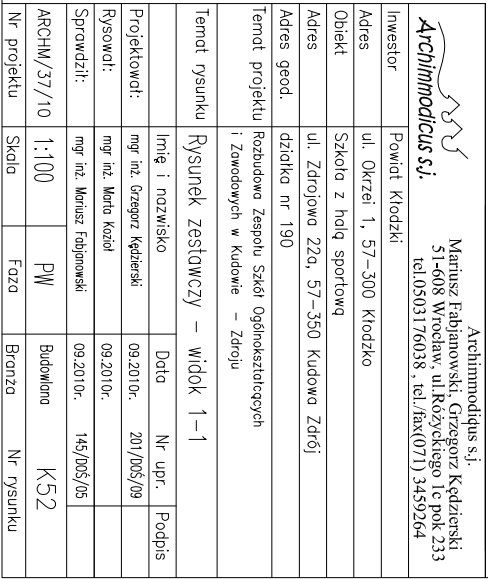 Archimmodicus s.j.
Archimmodiqus s.j.
Mariusz Fabjanowski, Grzegorz Kędzierski
51-608 Wrocław, ul.Różyckiego 1c pok 233
tel.0503176038 , tel./fax(071) 3459264
Inwestor Powiat Kłodzki
Adres ul. Okrzei 1, 57-300 Kłodzko
Obiekt Szkoła z halą sportową
Adres ul. Zdrojowa 22a, 57-350 Kudowa Zdrój
Adres geod. działka nr 190
Temat projektu Rozbudowa Zespołu Szkół Ogólnokształcących
i Zawodowych w Kudowie - Zdroju
Temat rysunku Rysunek zestawczy - widok 1-1
Imię i nazwisko Data Nr upr. Podpis
Projektował: mgr inż. Grzegorz Kędzierski 09.2010r. 201/DOŚ/09
Rysował: mgr inż. Marta Kozioł 09.2010r.
Sprawdził: mgr inż. Mariusz Fabjanowski 09.2010r. 145/DOŚ/05
ARCHM/37/10 1:100 PW Budowlana K52
Nr projektu Skala Faza Branża Nr rysunku